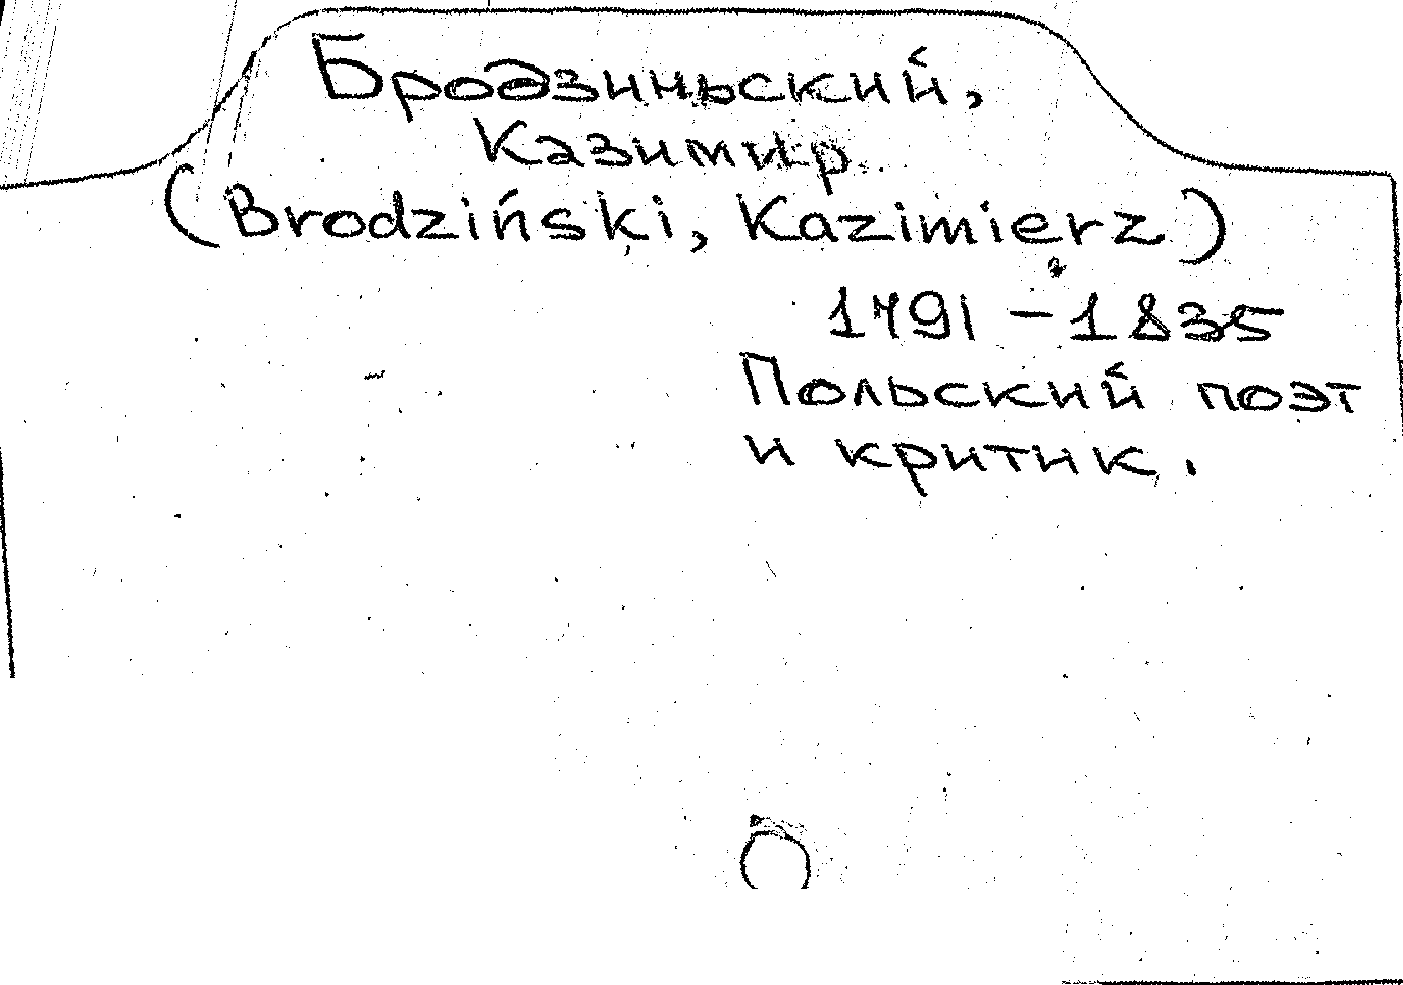 Бродзиньский,
Казимир.
(Brodziński, Kazimierz)
1791 – 1835
Польский поэт
и критик.